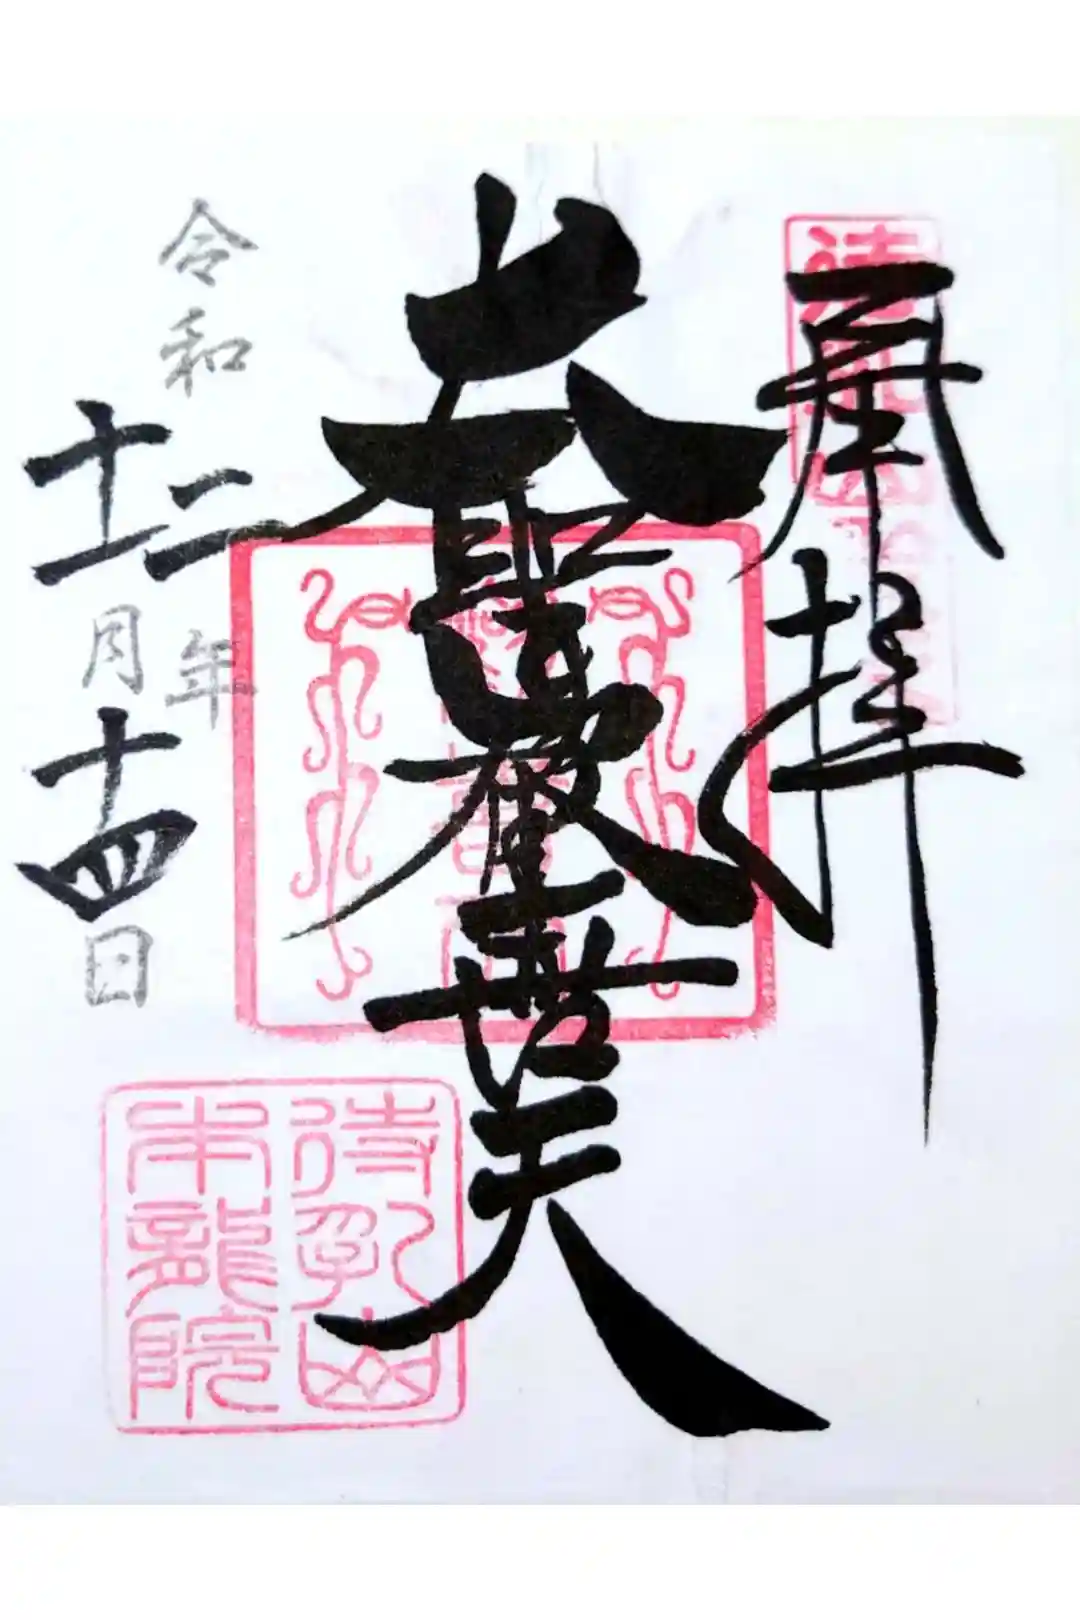 奉拝
大聖歡喜天
令和二年
十一月十四日
待乳山
本龍院